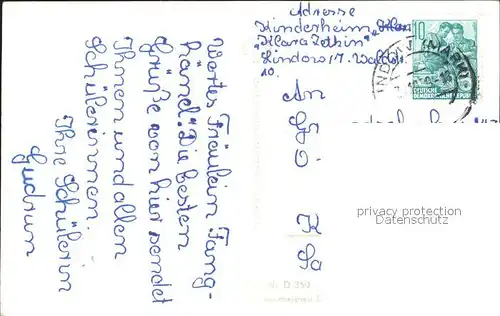 Wertes Fräulein Fang-
hänel! Die besten
Grüße von hier sendet
Ihnen und allen
Schülerinnen
Ihre Schülerin
Gudrun
Adresse
Kinderheim
"Klara Zetkin"
Lindow / M. Waldstr.
10.
10
DEUTSCHE
DEMOKRATISCHE REPUBLIK
LINDOW (MARK)
An
Gr
O.
K
Sa
privacy protection
Datenschutz
D 359